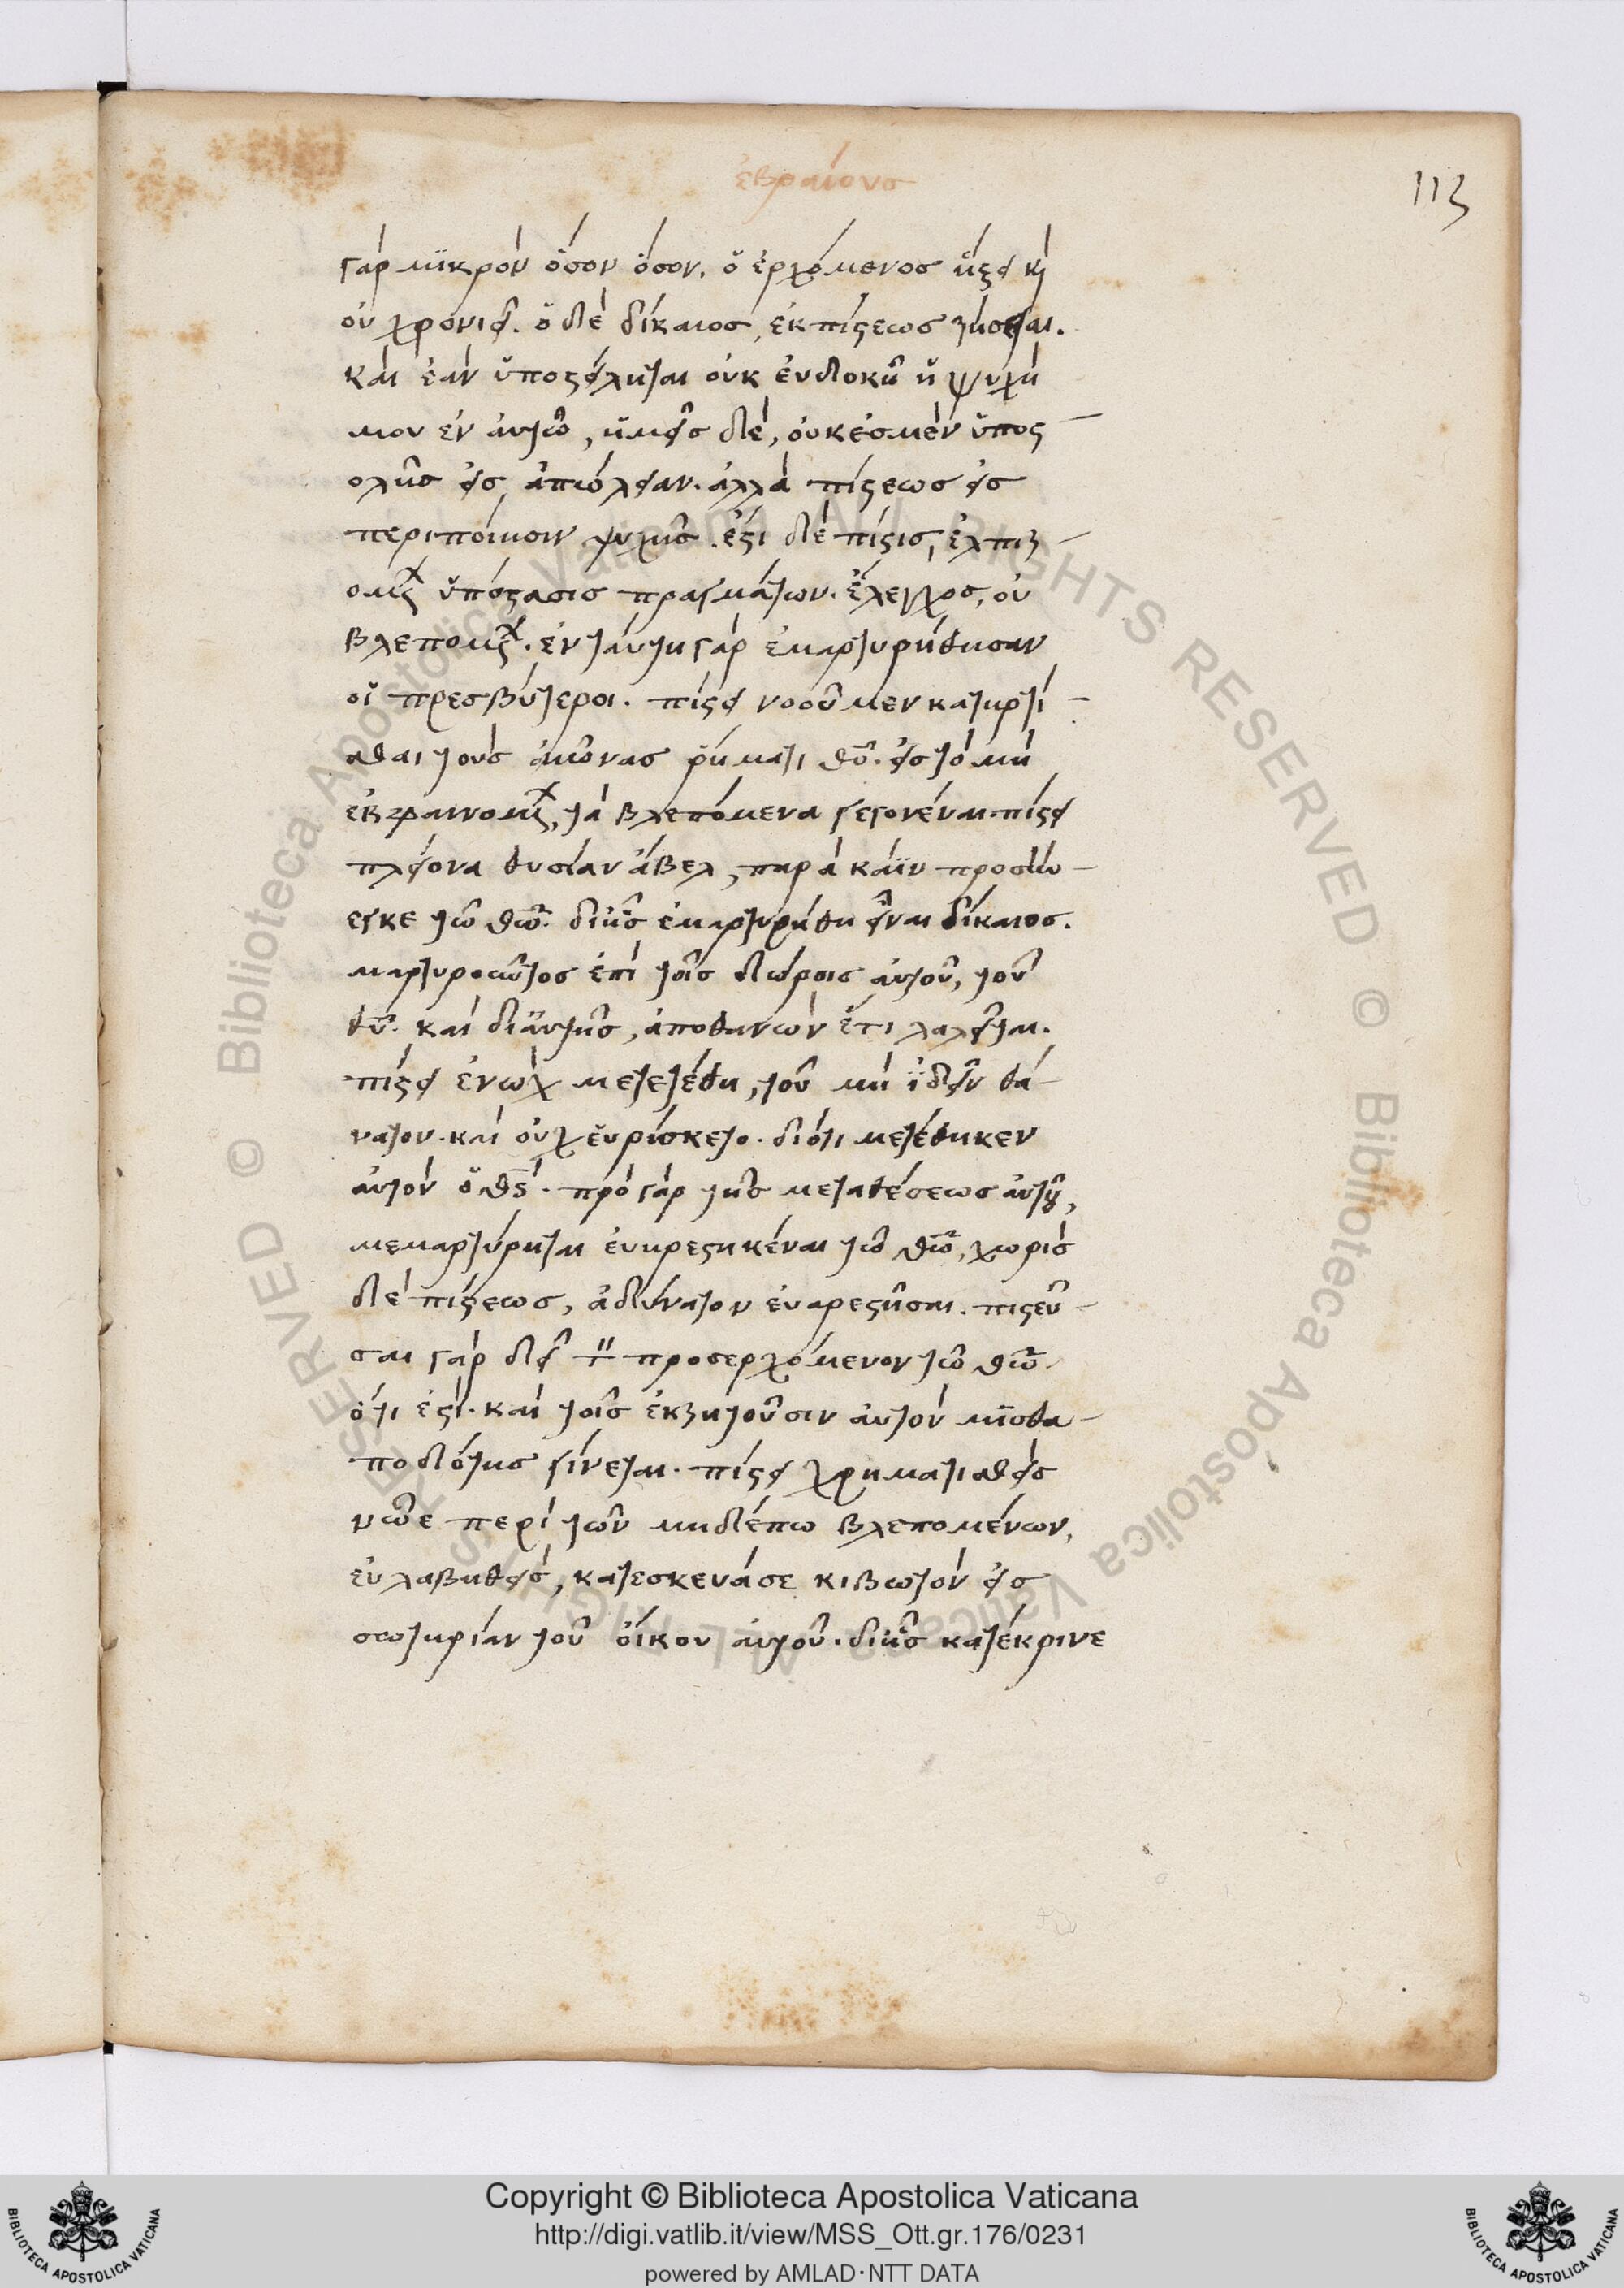 ἑβραίους
113
γὰρ μϊκρὸν ὅσον ὅσον. ὁ ἐρχόμενος ἥξει κὶ
οὐ χρονιεῖ. ὁ δὲ δίκαιος, ἐκ πίστεως ζήσεται.
καὶ ἐὰν ὑποστείληται οὐκ ἐυδοκῆ ἡ ψυχή
μου ἐν ἀυτῶ, ἡμεῖς δὲ, οὐκ ἐσμὲν ὑποστ
ολῆς εἰς ἀπώλειαν. ἀλλὰ πίστεως εἰς
περιποίησιν ψυχῆς. ἔστι δὲ πίστις, ἐλπιζ
ομένων ὑπόστασις πραγμάτων. ἔλεγχος, οὐ
βλεπομένων. ἐν ταύτη γὰρ ἐμαρτυρήθησαν
οἱ πρεσβύτεροι. πίστει νοοῦμεν κατηρτί
σθαι τοὺς ἀιῶνας ῥήματι θῦ. εἰς τὸ μὴ
ἐκ φαινομένων, τὰ βλεπόμενα γεγονέναι. πίστει
πλείονα θυσίαν ἄβελ, παρὰ κάϊν προσήν
εγκε τῶ θῶ. δι' ἧς ἐμαρτυρήθη εἶναι δίκαιος.
μαρτυροῦντος ἐπὶ τοῖς δώροις ἀυτοῦ, τοῦ
θῦ. καὶ δι' ἀυτῆς, ἀποθανὼν ἔτι λαλεῖται.
πίστει ἐνὼχ μετετέθη, τοῦ μὴ ϊδεῖν θά
νατον. καὶ οὐχ ἑυρίσκετο. διότι μετέθηκεν
ἀυτὸν ὁ θς. πρὸ γὰρ τῆς μεταθέσεως ἀυτοῦ,
μεμαρτύρηται ἐυηρεστηκέναι τῶ θῶ, χωρὶς
δὲ πίστεως, ἀδύνατον ἐυαρεστῆσαι. πιστεῦ
σαι γὰρ δεῖ τὸν προσερχόμενον τῶ θῶ.
ὅτι ἐστὶ. καὶ τοῖς ἐκζητοῦσιν ἀυτὸν μισθα
ποδότης γίνεται. πίστει χρηματισθεὶς
νῶε περὶ τῶν μηδέπω βλεπομένων,
ἐυλαβηθεὶς, κατεσκεύασε κιβωτὸν εἰς
σωτηρίαν τοῦ ὄικου ἀυτοῦ. δι' ἧς κατέκρινε
Copyright © Biblioteca Apostolica Vaticana
http://digi.vatlib.it/view/MSS_Ott.gr.176/0231
powered by AMLAD·NTT DATA
BIBLIOTECA APOSTOLICA VATICANA
BIBLIOTECA APOSTOLICA VATICANA
© Biblioteca Apostolica Vaticana ALL RIGHTS RESERVED
© Biblioteca Apostolica Vaticana ALL RIGHTS RESERVED